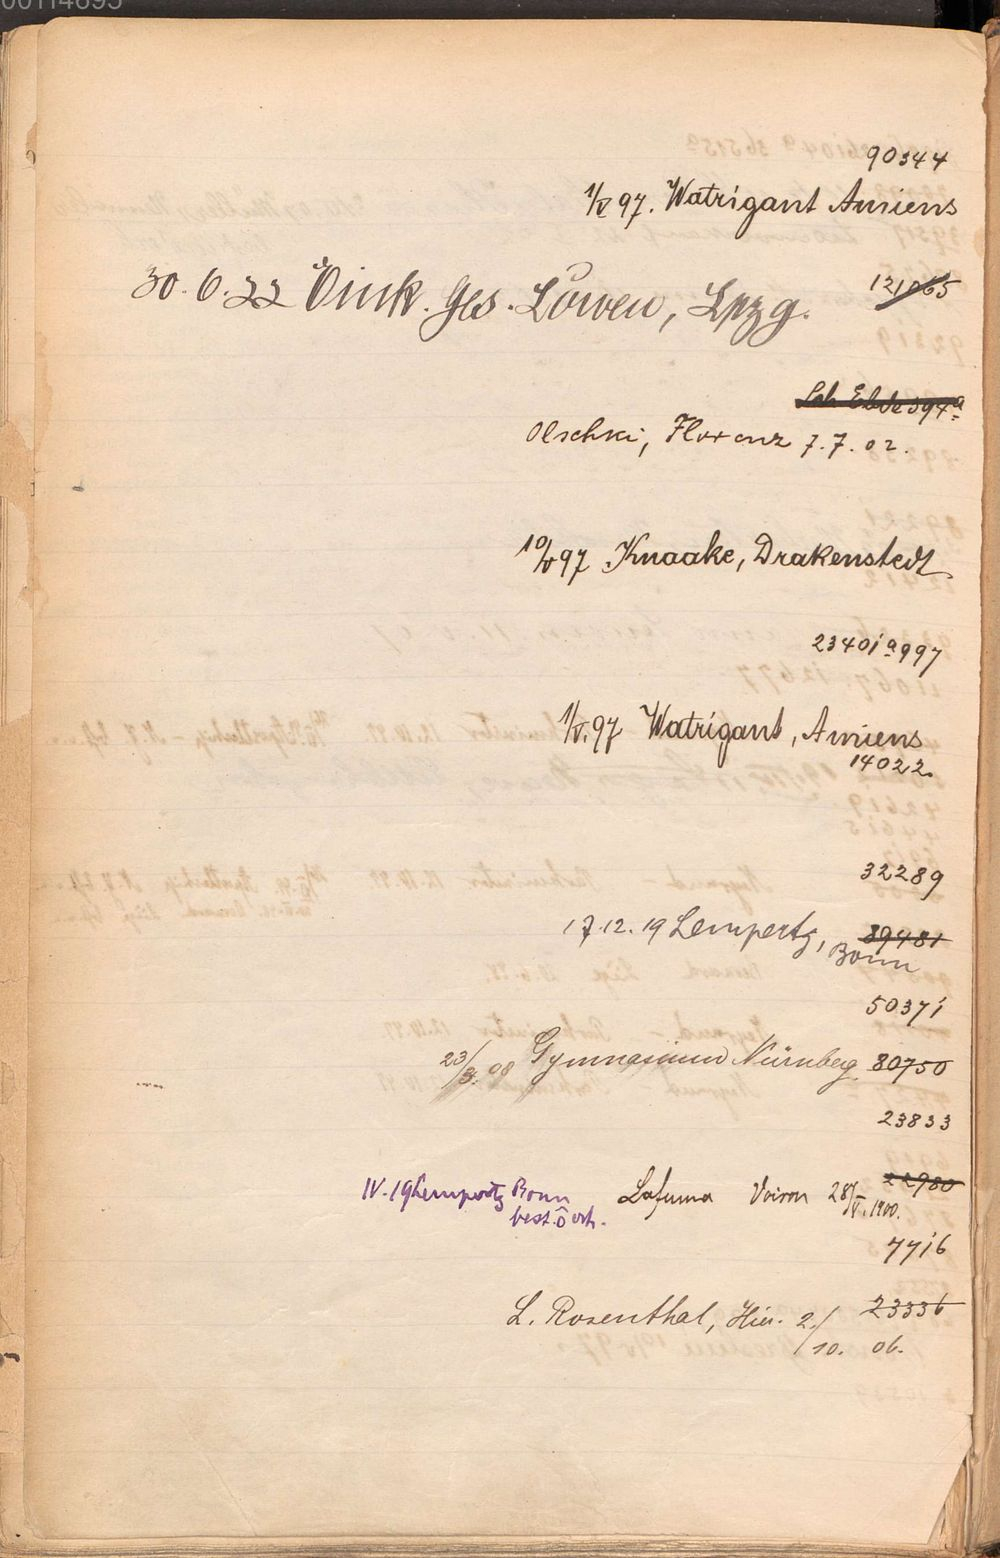 00114695
90344
1/V 97. Watrigant Amiens
30. 6. 22 Eink. Ges. Löwen, Lpzg. 121065
Olschki, Florenz 7. 7. 02.
10/V 97 Knaake, Drakenstedt
23401a997
1/V. 97 Watrigant, Amiens
14022.
32289
17. 12. 19 Lempertz, Bonn 39481
50371
23/3. 98 Gymnasium Nürnberg 80750
23833
22980
IV. 19 Lempertz Bonn Lafuma Voiron 28/V. 1900.
best.
7716
L. Rosenthal, Hier. 2./10. 06. 23336